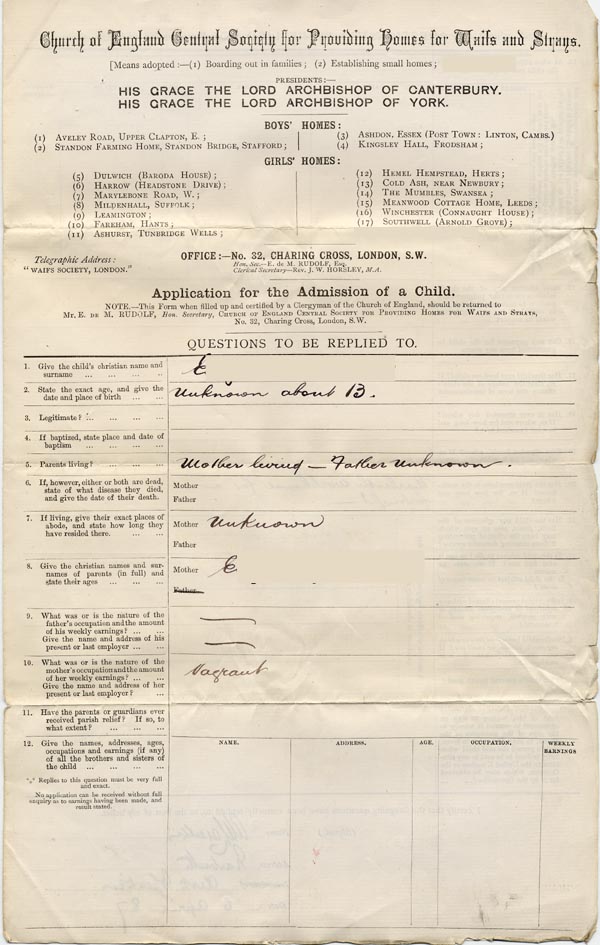 Church of England Central Society for Providing Homes for Waifs and Strays.
[Means adopted :—(1) Boarding out in families; (2) Establishing small homes;
PRESIDENTS:—
HIS GRACE THE LORD ARCHBISHOP OF CANTERBURY.
HIS GRACE THE LORD ARCHBISHOP OF YORK.
BOYS' HOMES:
(1) AVELEY ROAD, UPPER CLAPTON, E.;
(2) STANDON FARMING HOME, STANDON BRIDGE, STAFFORD;
(3) ASHDON, ESSEX (POST TOWN: LINTON, CAMBS.)
(4) KINGSLEY HALL, FRODSHAM;
GIRLS' HOMES:
(5) DULWICH (BARODA HOUSE);
(6) HARROW (HEADSTONE DRIVE);
(7) MARYLEBONE ROAD, W.;
(8) MILDENHALL, SUFFOLK;
(9) LEAMINGTON;
(10) FAREHAM, HANTS;
(11) ASHURST, TUNBRIDGE WELLS;
(12) HEMEL HEMPSTEAD, HERTS;
(13) COLD ASH, NEAR NEWBURY;
(14) THE MUMBLES, SWANSEA;
(15) MEANWOOD COTTAGE HOME, LEEDS;
(16) WINCHESTER (CONNAUGHT HOUSE);
(17) SOUTHWELL (ARNOLD GROVE);
Telegraphic Address:
"WAIFS SOCIETY, LONDON."
OFFICE:—No. 32, CHARING CROSS, LONDON, S.W.
Hon. Sec.—E. DE M. RUDOLF, Esq.
Clerical Secretary—REV. J. W. HORSLEY, M.A.
Application for the Admission of a Child.
NOTE.—This Form when filled up and certified by a Clergyman of the Church of England, should be returned to
MR. E. DE M. RUDOLF, Hon. Secretary, CHURCH OF ENGLAND CENTRAL SOCIETY FOR PROVIDING HOMES FOR WAIFS AND STRAYS,
No. 32, Charing Cross, London, S.W.
QUESTIONS TO BE REPLIED TO.
1. Give the child's christian name and
surname ... ... ... ..
E
2. State the exact age, and give the
date and place of birth ... ...
Unknown about 13.
3. Legitimate? ... ... ... ...
4. If baptized, state place and date of
baptism ... ... ... ...
5. Parents living? ... ... ... ...
Mother living — Father Unknown.
6. If, however, either or both are dead,
state of what disease they died,
and give the date of their death.
Mother
Father
7. If living, give their exact places of
abode, and state how long they
have resided there. ... ...
Mother Unknown
Father
8. Give the christian names and sur-
names of parents (in full) and
state their ages ... ... ...
Mother E
Father
9. What was or is the nature of the
father's occupation and the amount
of his weekly earnings? ... ...
Give the name and address of his
present or last employer ... ...
10. What was or is the nature of the
mother's occupation and the amount
of her weekly earnings? ... ...
Give the name and address of her
present or last employer? ...
Vagrant
11. Have the parents or guardians ever
received parish relief? If so, to
what extent? ... ... ...
12. Give the names, addresses, ages,
occupations and earnings (if any)
of all the brothers and sisters of
the child ... ... ... ...
Replies to this question must be very full
and exact.
No application can be received without full
enquiry as to earnings having been made, and
result stated.
NAME.
ADDRESS.
AGE.
OCCUPATION.
WEEKLY
EARNINGS